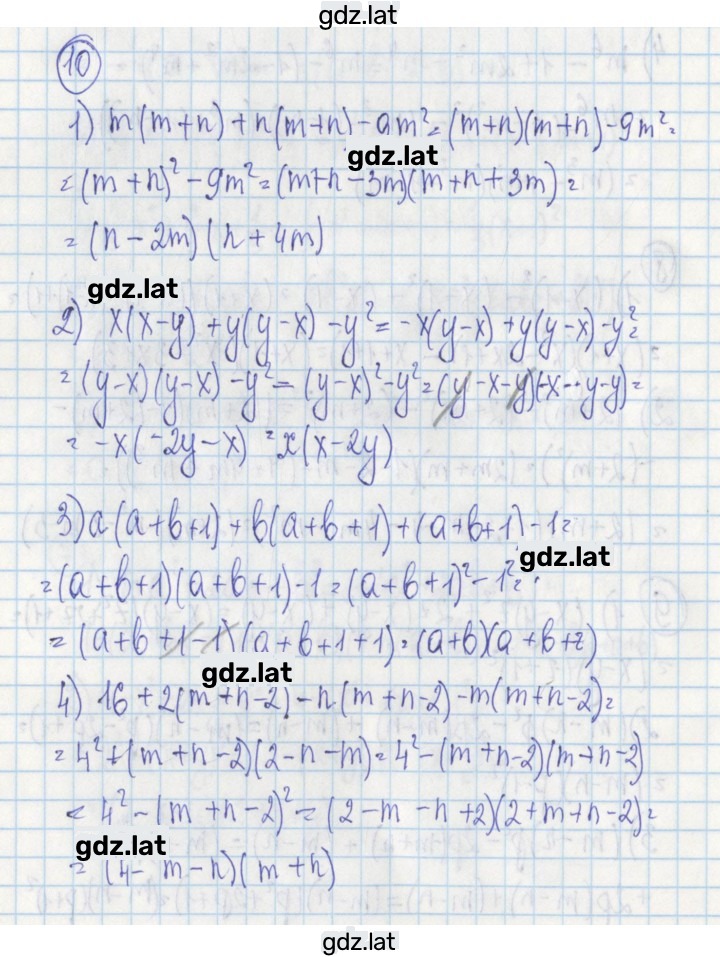 gdz.lat
10
1) m(m+n)+n(m+n)-9m²=(m+n)(m+n)-9m²=
gdz.lat
=(m+n)²-9m²=(m+n-3m)(m+n+3m)=
=(n-2m)(n+4m)
gdz.lat
2) x(x-y)+y(y-x)-y²=-x(y-x)+y(y-x)-y²=
=(y-x)(y-x)-y²=(y-x)²-y²=(y-x-y)(-x··y-y)=
=-x(-2y-x)=x(x-2y)
3) a(a+b+1)+b(a+b+1)+(a+b+1)-1=
gdz.lat
=(a+b+1)(a+b+1)-1=(a+b+1)²-1²=
=(a+b+1-1)(a+b+1+1)=(a+b)(a+b+2)
gdz.lat
4) 16+2(m+n-2)-n(m+n-2)-m(m+n-2)=
=4²+(m+n-2)(2-n-m)=4²-(m+n-2)(m+n-2)
=4²-(m+n-2)²=(2-m-n+2)(2+m+n-2)=
gdz.lat
=(4-m-n)(m+n)
gdz.lat